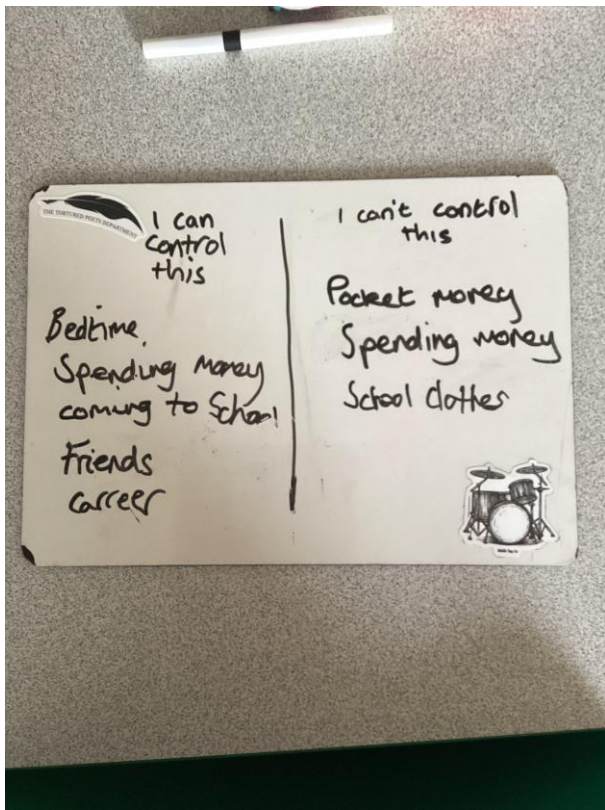 THE TORTURED POETS DEPARTMENT
I can
control
this
Bedtime.
Spending money
coming to School
Friends
carreer
I can't control
this
Pocket money
Spending money
School clothes